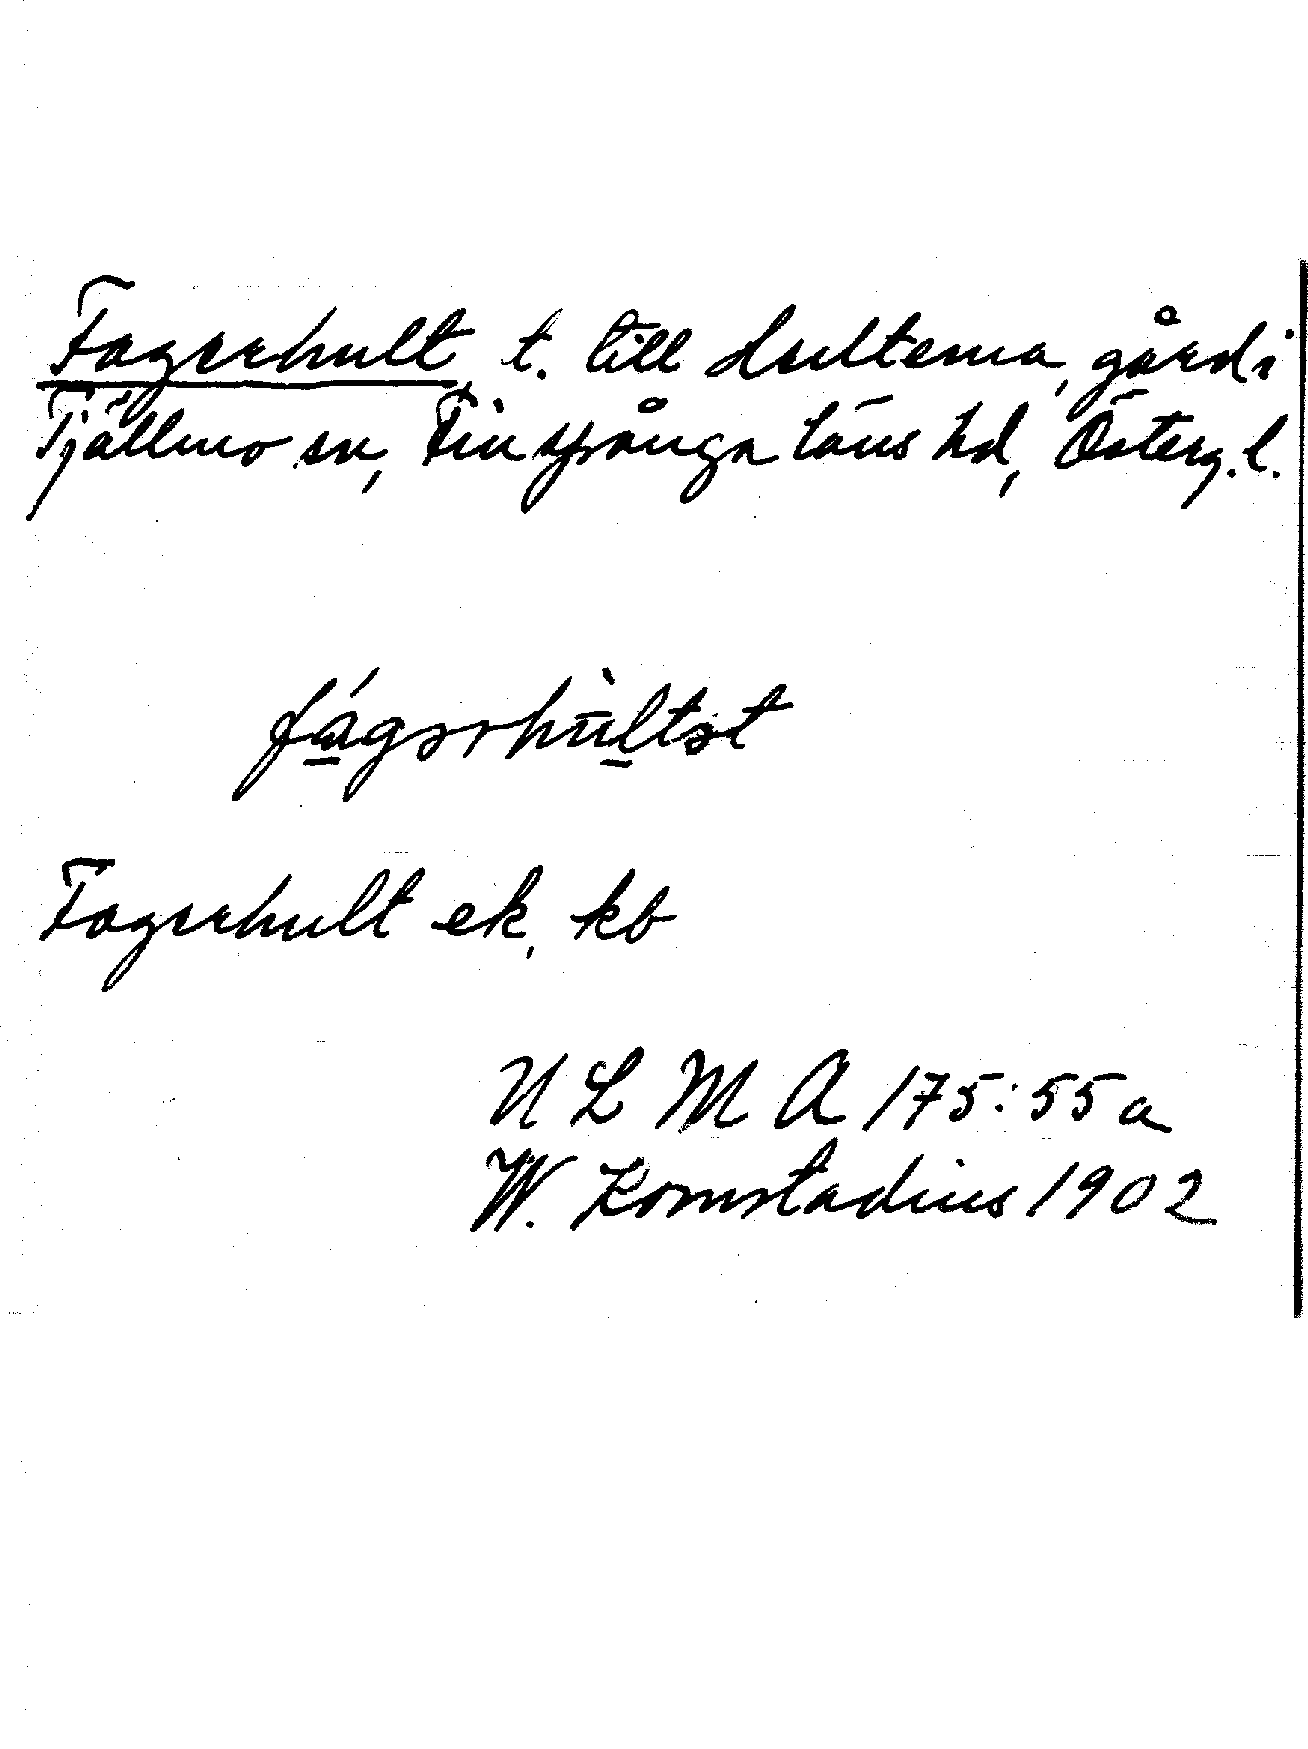 Fagerhult, t. till Hulterna, gård i
Tjällmo sn, Finspånga läns hd, Österg.l.
fágərhùltət
Fagerhult ek, kb
ULMA 175:55a
W. Kornstadius 1902